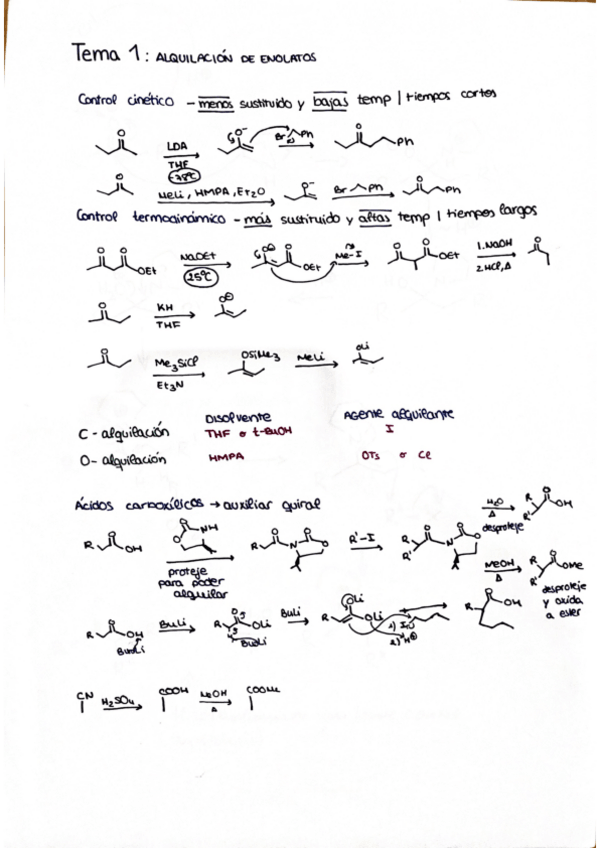 Tema 1: ALQUILACIÓN DE ENOLATOS
Control cinético - menos sustituido y bajas temp | tiempos cortos
O LDA O⁻ Br Ph O Ph
THF
-78ºC
O MeLi, HMPA, Et2O O⁻ Br Ph O Ph
Control termodinámico - más sustituido y altas temp | tiempos largos
O O OEt NaOEt O O OEt Me-I O O OEt 1. NaOH O
25ºC 2. HCl, Δ
O KH O
THF
O Me3SiCl OSiMe3 MeLi OLi
Et3N
Disolvente Agente alquilante
C- alquilación THF o t-BuOH I
O- alquilación HMPA OTs o Cl
Ácidos carboxílicos → auxiliar quiral
H2O O
Δ R' OH
desproteje
R O OH O NH R O N O O R'-I R R' O N O O
proteje
para poder
alquilar
MeOH R O OMe
Δ R'
desproteje
y oxida
a ester
R O OH BuLi R O OLi BuLi R OLi OLi R O OH
BuLi H BuLi 1) I
2) H⊕
CN H2SO4 COOH MeOH COOMe
Δ